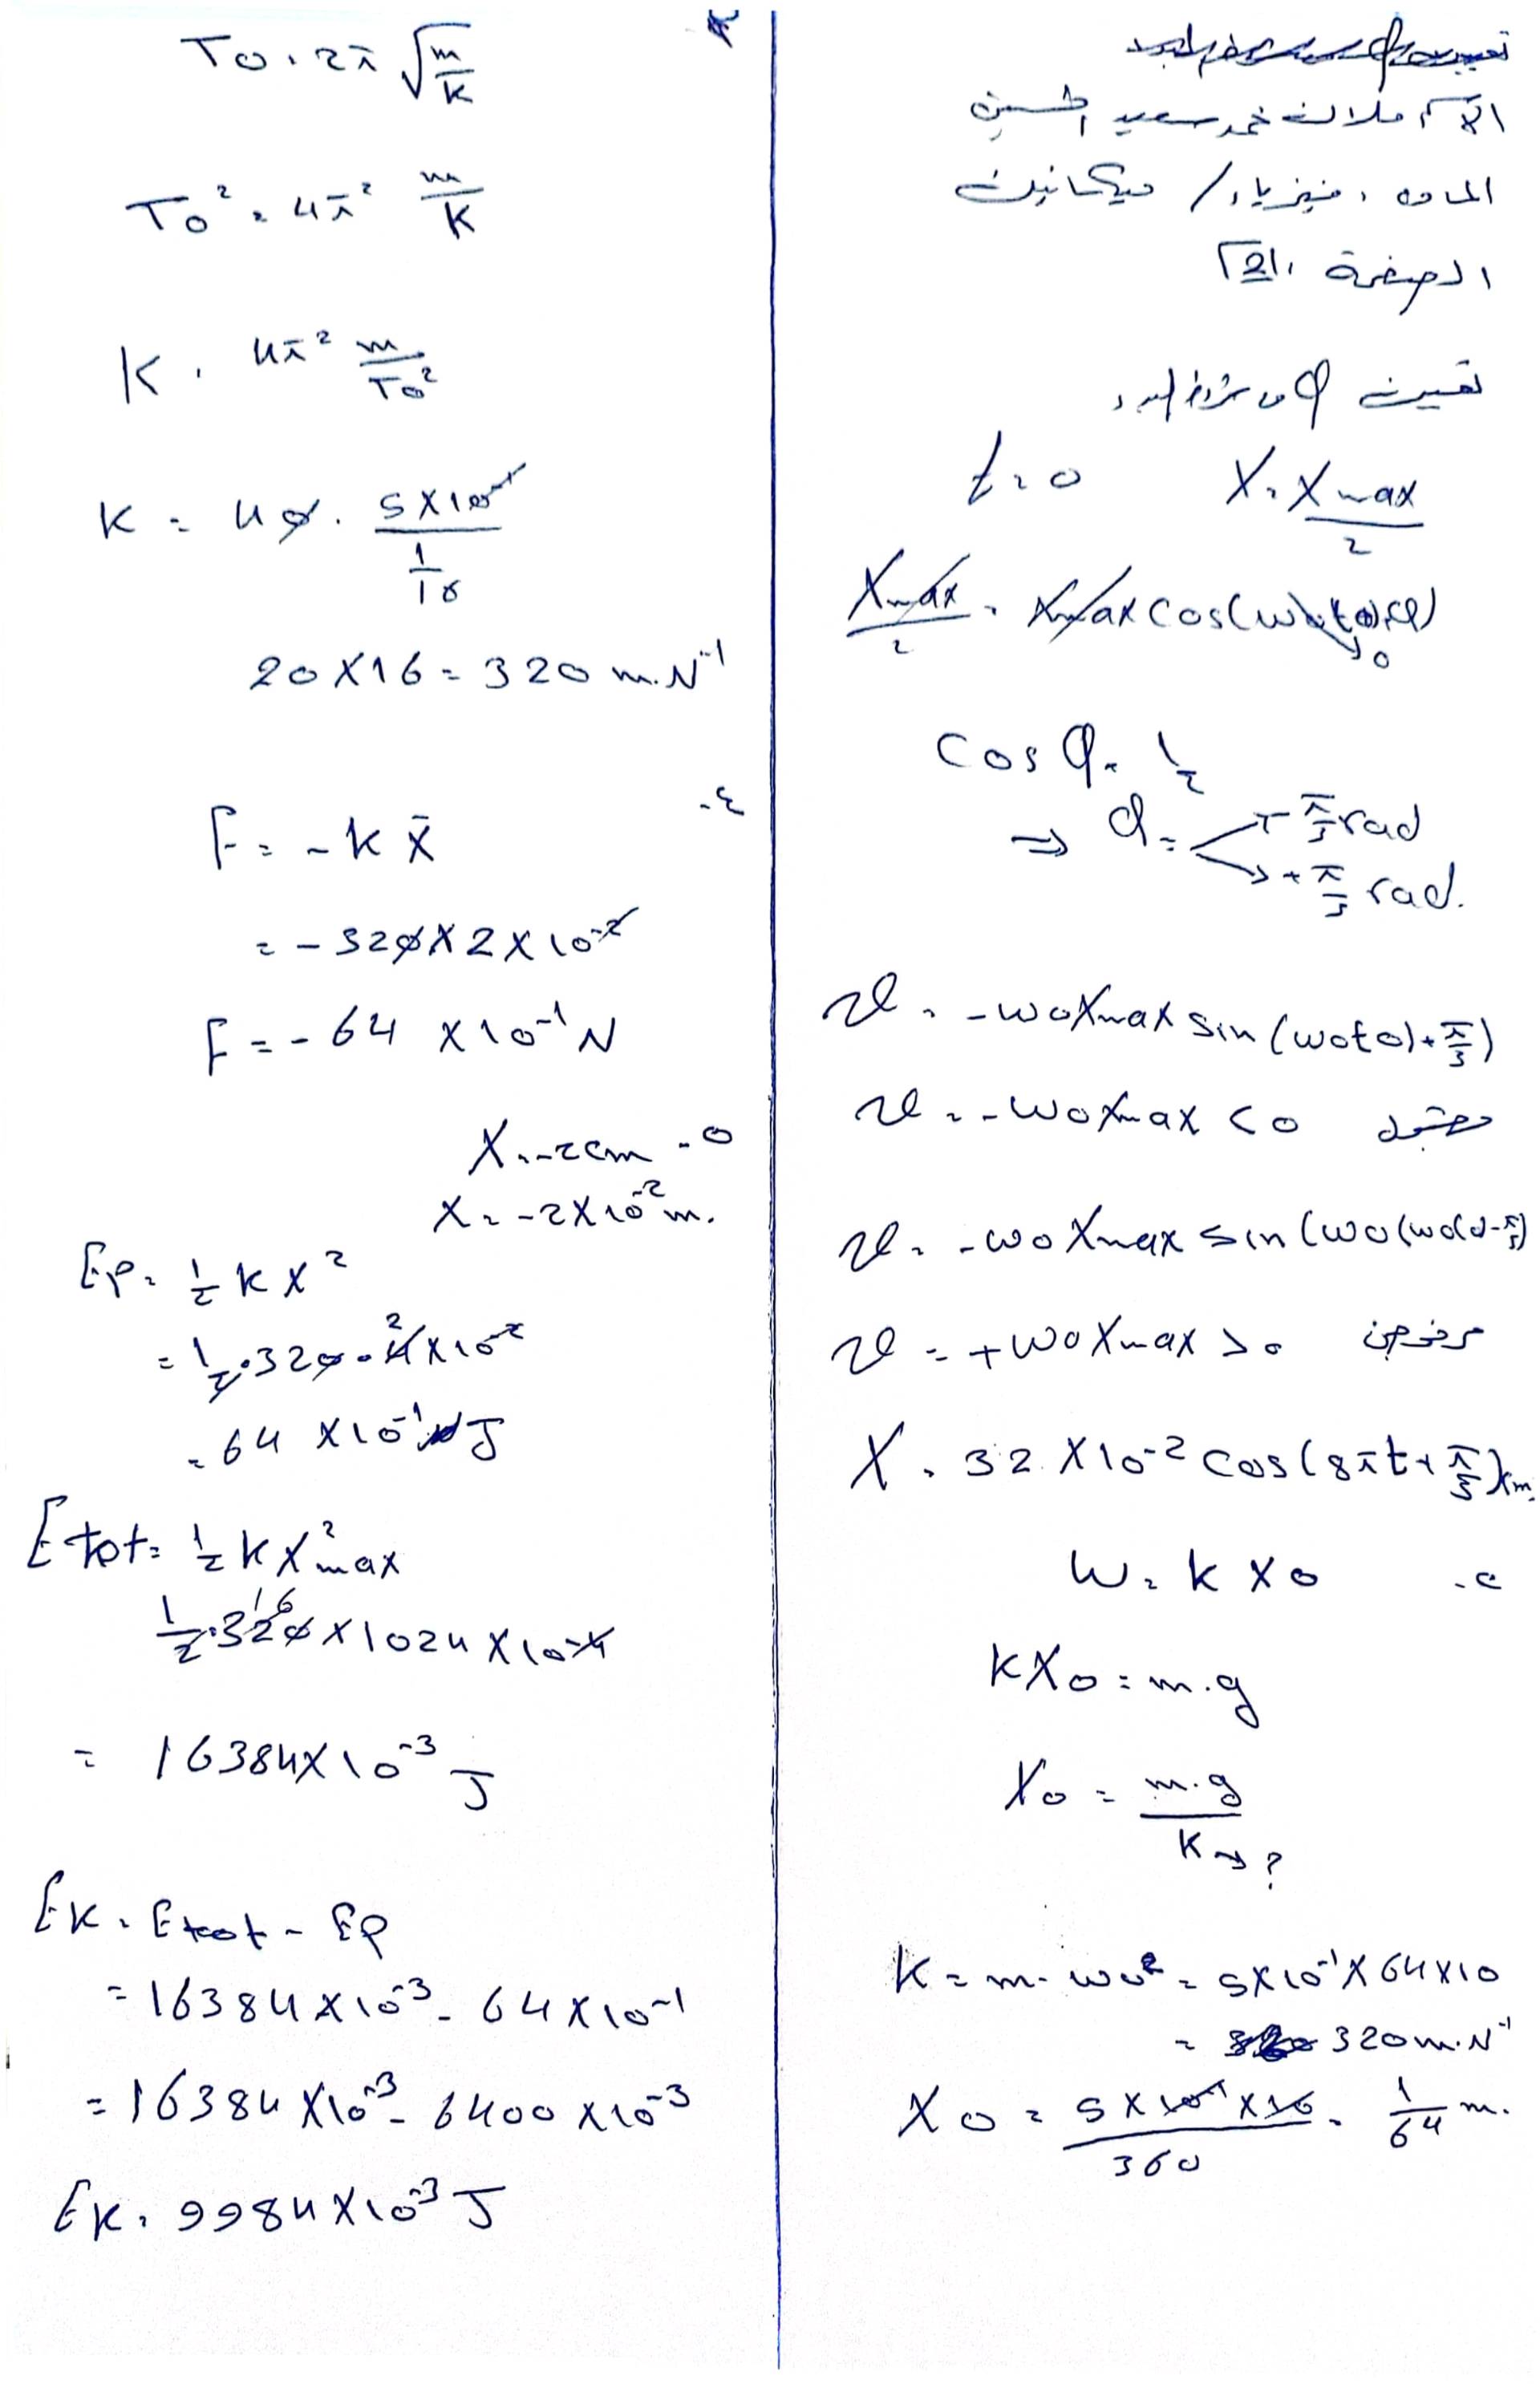 الاسم ملاك محمد سعيد الحسين
المادة، فيزياء / ميكانيك
الصفحة
تعيين φ من شروط البدء
t=0 X=Xmax/2
Xmax/2 = Xmax cos(ω0t(0)+φ) → 0
cos φ = 1/2
⇒ φ = + π/3 rad
→ + π/3 rad.
v = -ω0Xmax sin(ω0t0)+π/3)
v = -ω0Xmax < 0 مقبول
v = -ω0Xmax sin(ω0(ω0(0)-π/3)
v = +ω0Xmax > 0 مرفوض
X = 32 X10-2 cos(8πt+π/3)
W = k X0
kX0 = m.g
X0 = m.g/K → ?
K = m. ω0² = 5X10-1 X 64X10
= 320m.N-1
X0 = 5X10-1X10/360 = 1/64 m.
T0 = 2π √m/K
T0² = 4π² m/K
K = 4π² m/T0²
K = 40 . 5X10-1 / 1/16
20X16 = 320 m.N-1
٤-
F = -K x̄
= -320X2X10-2
F = -64 X10-1 N
X = -2cm ٥-
X = -2X10-2 m.
Ep = 1/2 K X²
= 1/2 . 320 . 4 2 X10-2
= 64 X10-1 J
Etot = 1/2 K X²max
1/2 . 320 16 X1024X10-4
= 16384X10-3 J
EK = Etot - Ep
= 16384X10-3 - 64X10-1
= 16384X10-3 - 6400X10-3
EK = 9984X10-3 J